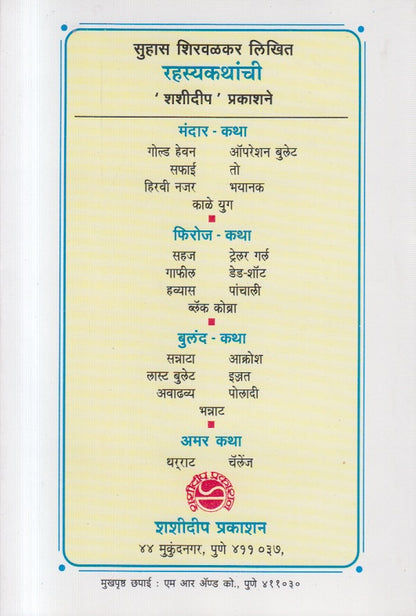 सुहास शिरवळकर लिखित
रहस्यकथांची
' शशीदीप ' प्रकाशने
मंदार - कथा
गोल्ड हेवन ऑपरेशन बुलेट
सफाई तो
हिरवी नजर भयानक
काळे युग
फिरोज - कथा
सहज ट्रेलर गर्ल
गाफील डेड-शॉट
हव्यास पांचाली
ब्लॅक कोब्रा
बुलंद - कथा
सन्नाटा आक्रोश
लास्ट बुलेट इज्जत
अवाढव्य पोलादी
भन्नाट
अमर कथा
थर्राट चॅलेंज
शशीदीप प्रकाशन
शशीदीप प्रकाशन
४४ मुकुंदनगर, पुणे ४११ ०३७,
मुखपृष्ठ छपाई : एम आर अ‍ॅण्ड को., पुणे ४११०३०